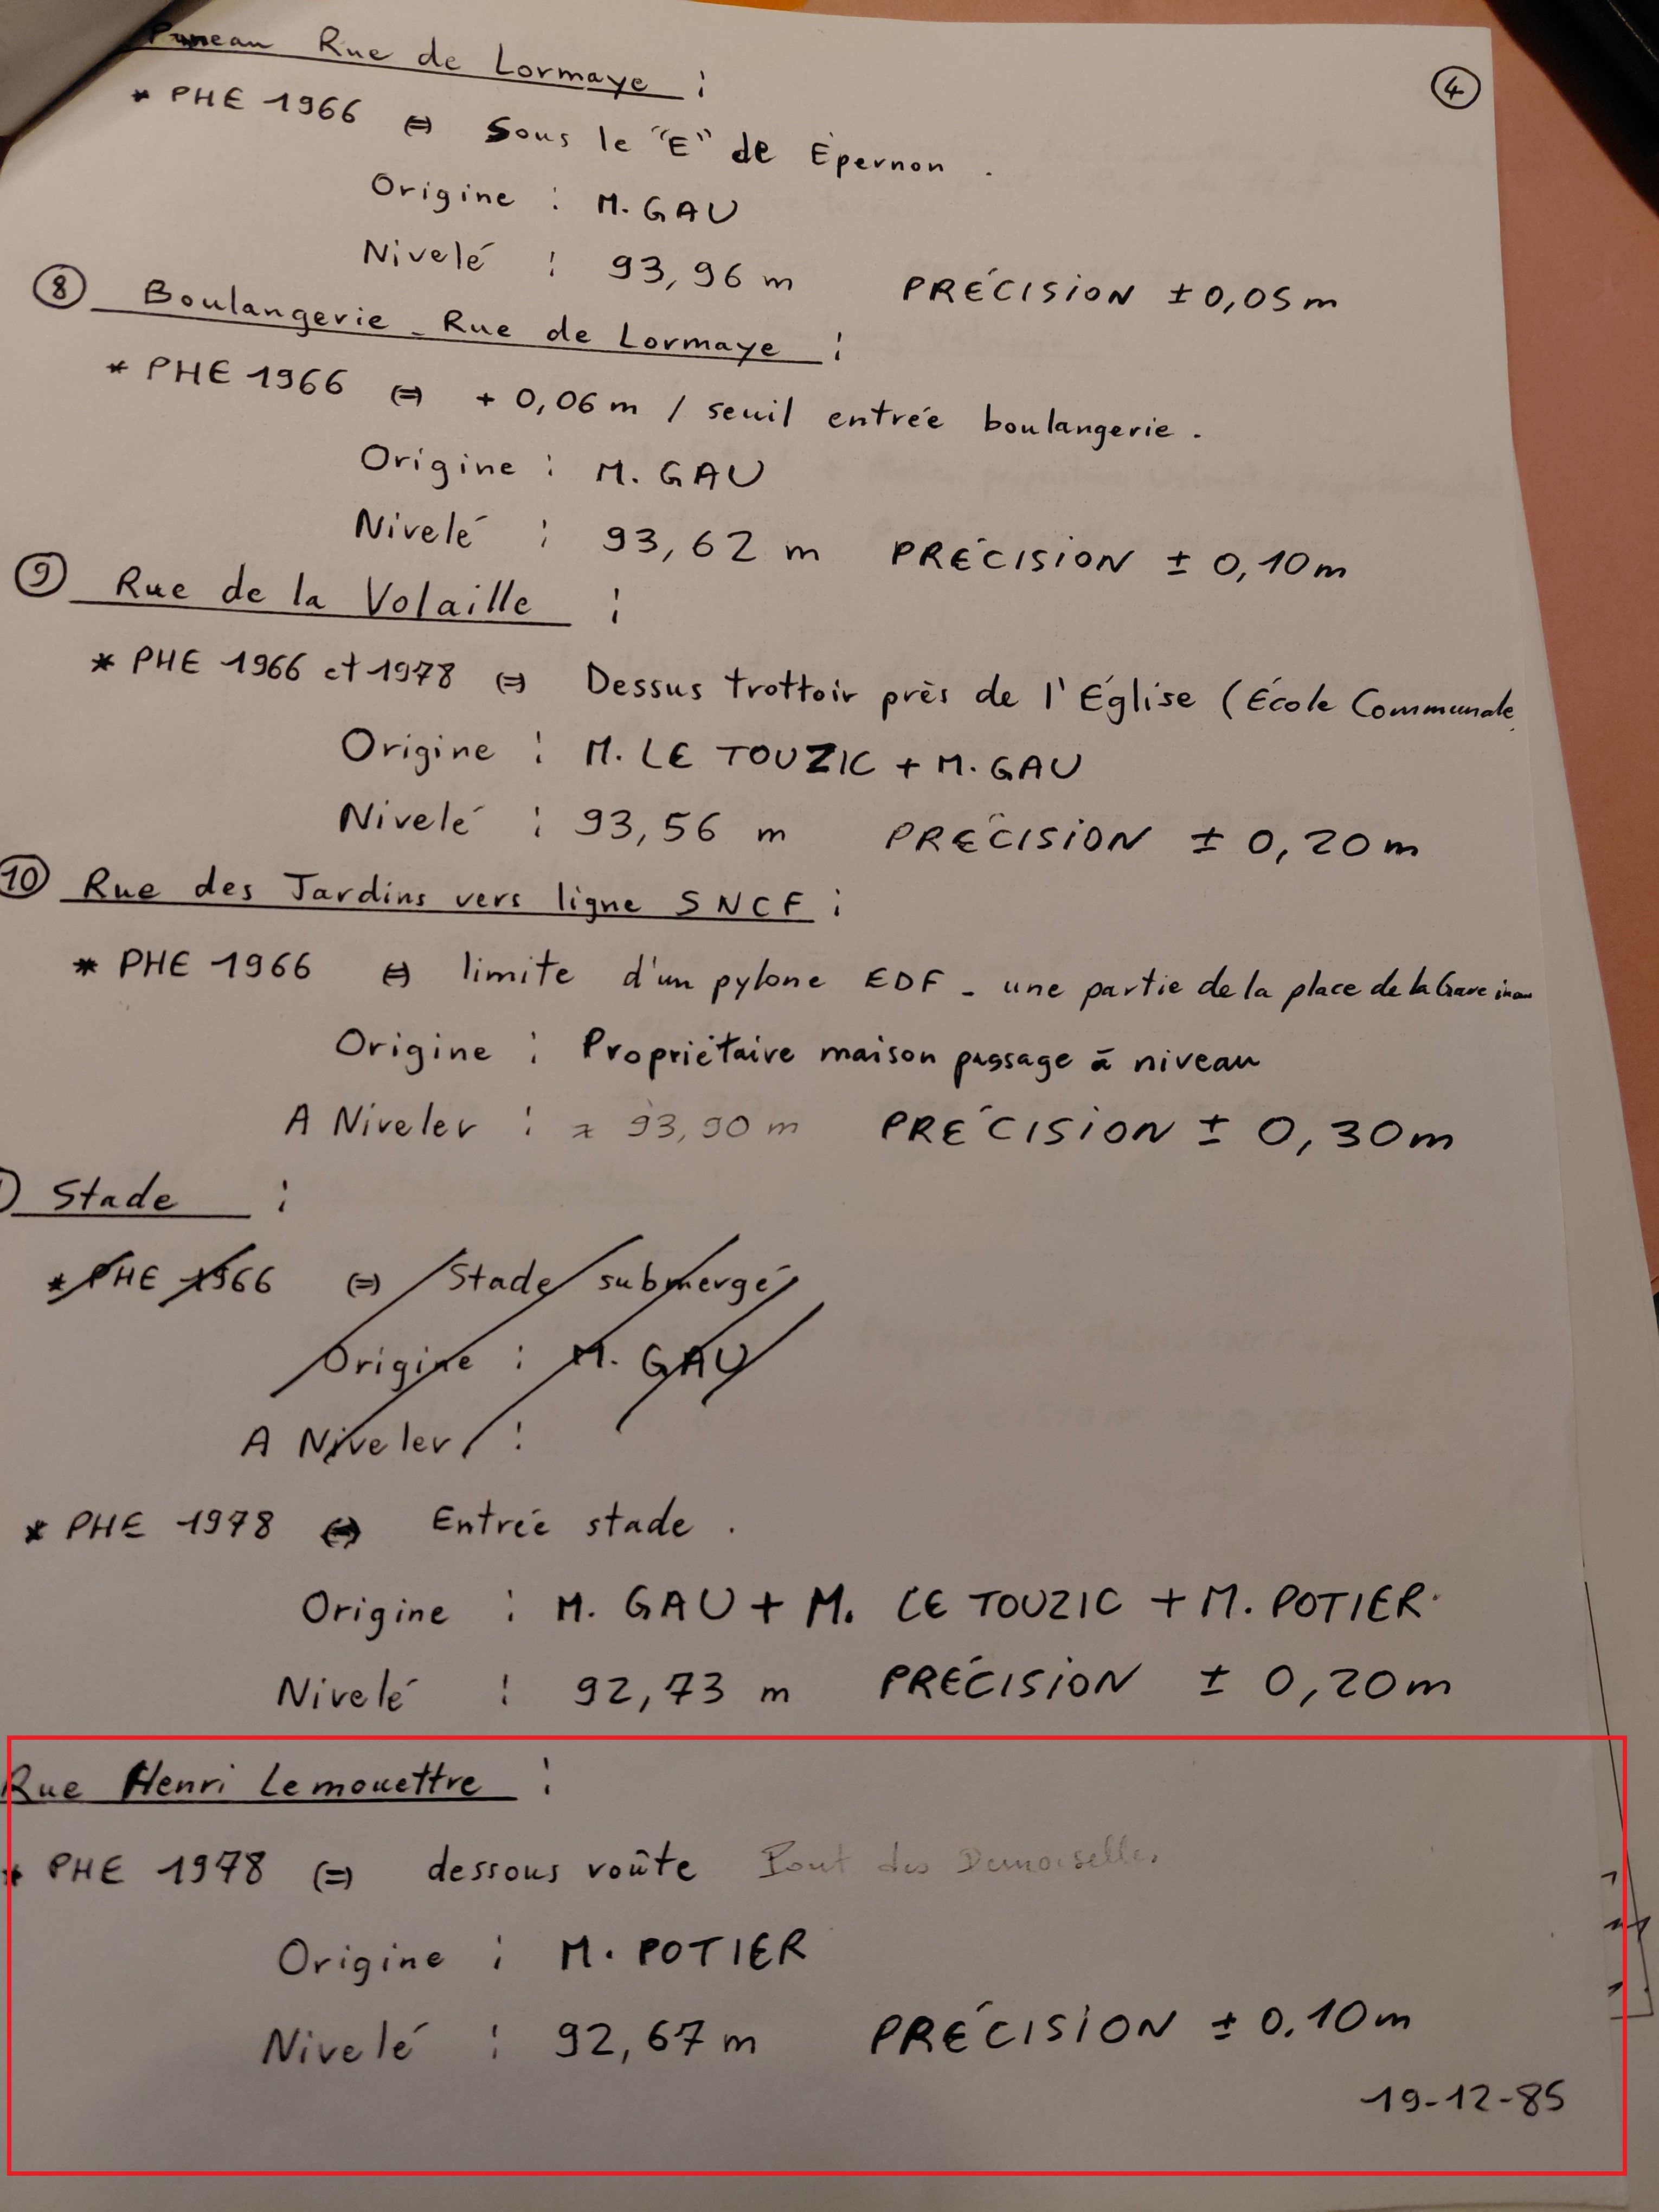 Panneau Rue de Lormaye :
④
* PHE 1966 (=) Sous le "E" de Épernon .
Origine : M. GAU
Nivelé : 93,96 m PRÉCISION ± 0,05 m
⑧ Boulangerie - Rue de Lormaye :
* PHE 1966 (=) + 0,06 m / seuil entrée boulangerie .
Origine : M. GAU
Nivelé : 93,62 m PRÉCISION ± 0,10 m
⑨ Rue de la Volaille :
* PHE 1966 et 1978 (=) Dessus trottoir près de l'Église (École Communale
Origine : M. LE TOUZIC + M. GAU
Nivelé : 93,56 m PRÉCISION ± 0,20 m
⑩ Rue des Jardins vers ligne SNCF :
* PHE 1966 (=) limite d'un pylone EDF - une partie de la place de la Gare
Origine : Propriétaire maison passage à niveau
A Niveler : ≈ 93,90 m PRÉCISION ± 0,30 m
Stade :
* PHE 1966 (=) Stade submergé
Origine : M. GAU
A Niveler :
* PHE 1978 (=) Entrée stade .
Origine : M. GAU + M. LE TOUZIC + M. POTIER
Nivelé : 92,73 m PRÉCISION ± 0,20 m
Rue Henri Lemouettre :
* PHE 1978 (=) dessous voûte Pont des Demoiselles
Origine : M. POTIER
Nivelé : 92,67 m PRÉCISION ± 0.10 m
19-12-85